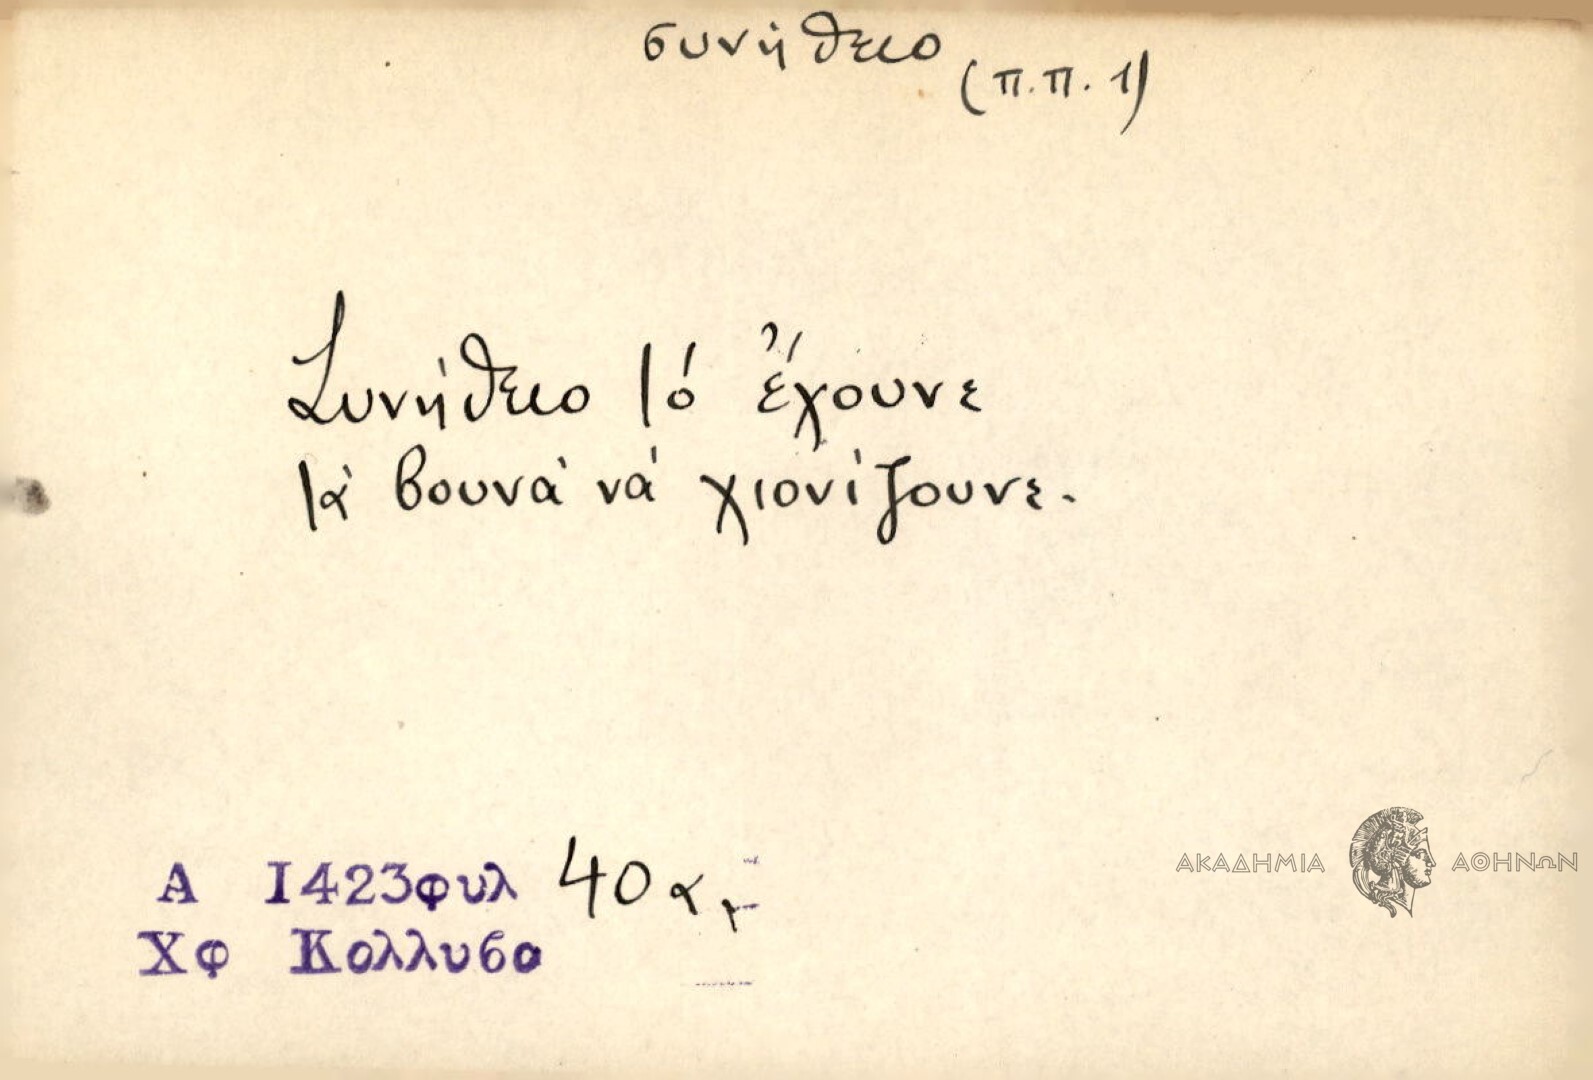 συνήθειο
(π.π. 1)
Συνήθειο τό ἔχουνε
τά βουνά νά χιονίζουνε.
Α 1423φυλ 40α,
Χφ Κολλυβα
ΑΚΑΔΗΜΙΑ ΑΘΗΝΩΝ